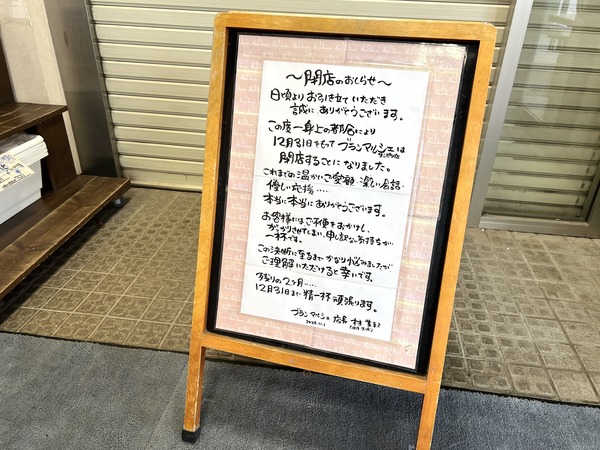 〜閉店のおしらせ〜
日頃より お引き立て いただき
誠に ありがとうございます。
この度 一身上の都合により
12月31日をもって ブランマルシェは
閉店することになりました。
これまでの温かいご愛顧、楽しい会話、
優しい応援……
本当に本当にありがとうございます。
お客様にはご不便をおかけし、
がっかりさせてしまい、申し訳ない気持ちが
一杯です。
この決断に至るまで かなり悩みましたが
ご理解いただけると幸いです。
残りの2ヶ月……
12月31日まで精一杯頑張ります。
ブランマルシェ 店長